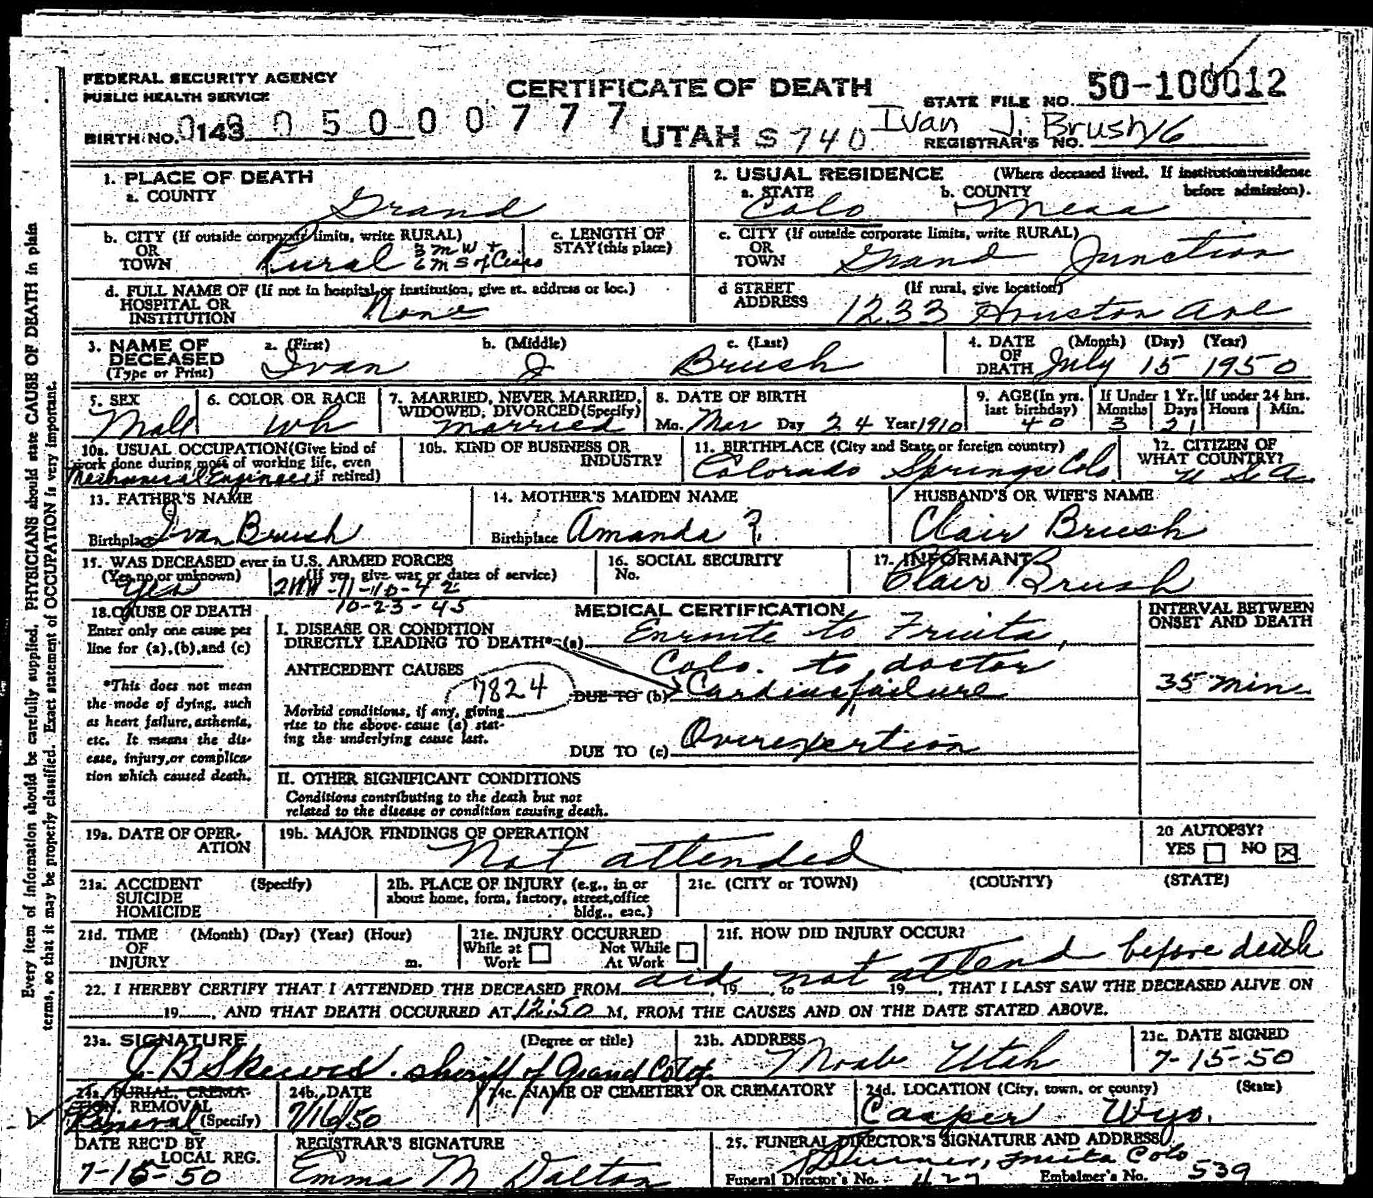 FEDERAL SECURITY AGENCY
PUBLIC HEALTH SERVICE
CERTIFICATE OF DEATH
STATE FILE NO. 50-100012
BIRTH NO. 0143 0 5 0 - 0 0 7 7 7
UTAH S 740
Ivan J. Brush
REGISTRAR'S NO. 16
1. PLACE OF DEATH
a. COUNTY Grand
2. USUAL RESIDENCE (Where deceased lived. If institution: residence before admission).
a. STATE Colo b. COUNTY Mesa
b. CITY (If outside corporate limits, write RURAL) OR TOWN Rural 3 m W + 6 m S of Cisco
c. LENGTH OF STAY (this place)
c. CITY (If outside corporate limits, write RURAL) OR TOWN Grand Junction
d. FULL NAME OF (If not in hospital or institution, give st. address or loc.) HOSPITAL OR INSTITUTION None
d STREET ADDRESS (If rural, give location) 1233 Houston Ave
3. NAME OF DECEASED (Type or Print) a. (First) Ivan b. (Middle) J c. (Last) Brush
4. DATE OF DEATH (Month) (Day) (Year) July 15 1950
5. SEX Male
6. COLOR OR RACE wh
7. MARRIED, NEVER MARRIED, WIDOWED, DIVORCED (Specify) married
8. DATE OF BIRTH Mo. Mar Day 24 Year 1910
9. AGE (In yrs. last birthday) 40
If Under 1 Yr. Months 3 Days 21
If under 24 hrs. Hours Min.
10a. USUAL OCCUPATION (Give kind of work done during most of working life, even if retired) Mechanical Engineer
10b. KIND OF BUSINESS OR INDUSTRY
11. BIRTHPLACE (City and State or foreign country) Colorado Springs Colo
12. CITIZEN OF WHAT COUNTRY? U S A.
13. FATHER'S NAME Ivan Brush
Birthplace
14. MOTHER'S MAIDEN NAME Amanda ?
Birthplace
HUSBAND'S OR WIFE'S NAME Clair Brush
15. WAS DECEASED ever in U.S. ARMED FORCES (Yes, no or unknown) Yes (If yes, give war or dates of service) 2WW-11-10-42
10-23-45
16. SOCIAL SECURITY No.
17. INFORMANT Clair Brush
18. CAUSE OF DEATH
Enter only one cause per line for (a), (b), and (c)
*This does not mean the mode of dying, such as heart failure, asthenia, etc. It means the disease, injury, or complication which caused death.
MEDICAL CERTIFICATION
INTERVAL BETWEEN ONSET AND DEATH
I. DISEASE OR CONDITION DIRECTLY LEADING TO DEATH* (a) Enroute to Fruita,
Colo. to doctor
ANTECEDENT CAUSES
7824
DUE TO (b) Cardiac failure
35 min.
Morbid conditions, if any, giving rise to the above cause (a) stating the underlying cause last.
DUE TO (c) Overexertion
II. OTHER SIGNIFICANT CONDITIONS
Conditions contributing to the death but not related to the disease or condition causing death.
19a. DATE OF OPERATION
19b. MAJOR FINDINGS OF OPERATION Not attended
20 AUTOPSY? YES NO X
21a. ACCIDENT SUICIDE HOMICIDE (Specify)
21b. PLACE OF INJURY (e.g., in or about home, form, factory, street, office bldg., exc.)
21c. (CITY or TOWN) (COUNTY) (STATE)
21d. TIME OF INJURY (Month) (Day) (Year) (Hour) m.
21e. INJURY OCCURRED While at Work Not While At Work
21f. HOW DID INJURY OCCUR?
did not attend before death
22. I HEREBY CERTIFY THAT I ATTENDED THE DECEASED FROM , 19 , to 19 , THAT I LAST SAW THE DECEASED ALIVE ON
19 , AND THAT DEATH OCCURRED AT 12:50 M, FROM THE CAUSES AND ON THE DATE STATED ABOVE.
23a. SIGNATURE (Degree or title) J. B. Skewes. sheriff of Grand Co
23b. ADDRESS Moab Utah
23c. DATE SIGNED 7-15-50
24a. BURIAL, CREMATION, REMOVAL (Specify) Removal
24b. DATE 7/16/50
24c. NAME OF CEMETERY OR CREMATORY
24d. LOCATION (City, town, or county) (State) Casper Wyo.
DATE REC'D BY LOCAL REG. 7-15-50
REGISTRAR'S SIGNATURE Emma M Dalton
25. FUNERAL DIRECTOR'S SIGNATURE AND ADDRESS Fruita Colo
Funeral Director's No. 427 Embalmer's No. 539
Every item of information should be carefully supplied. PHYSICIANS should state CAUSE OF DEATH in plain
terms, so that it may be properly classified. Exact statement of OCCUPATION is very important.